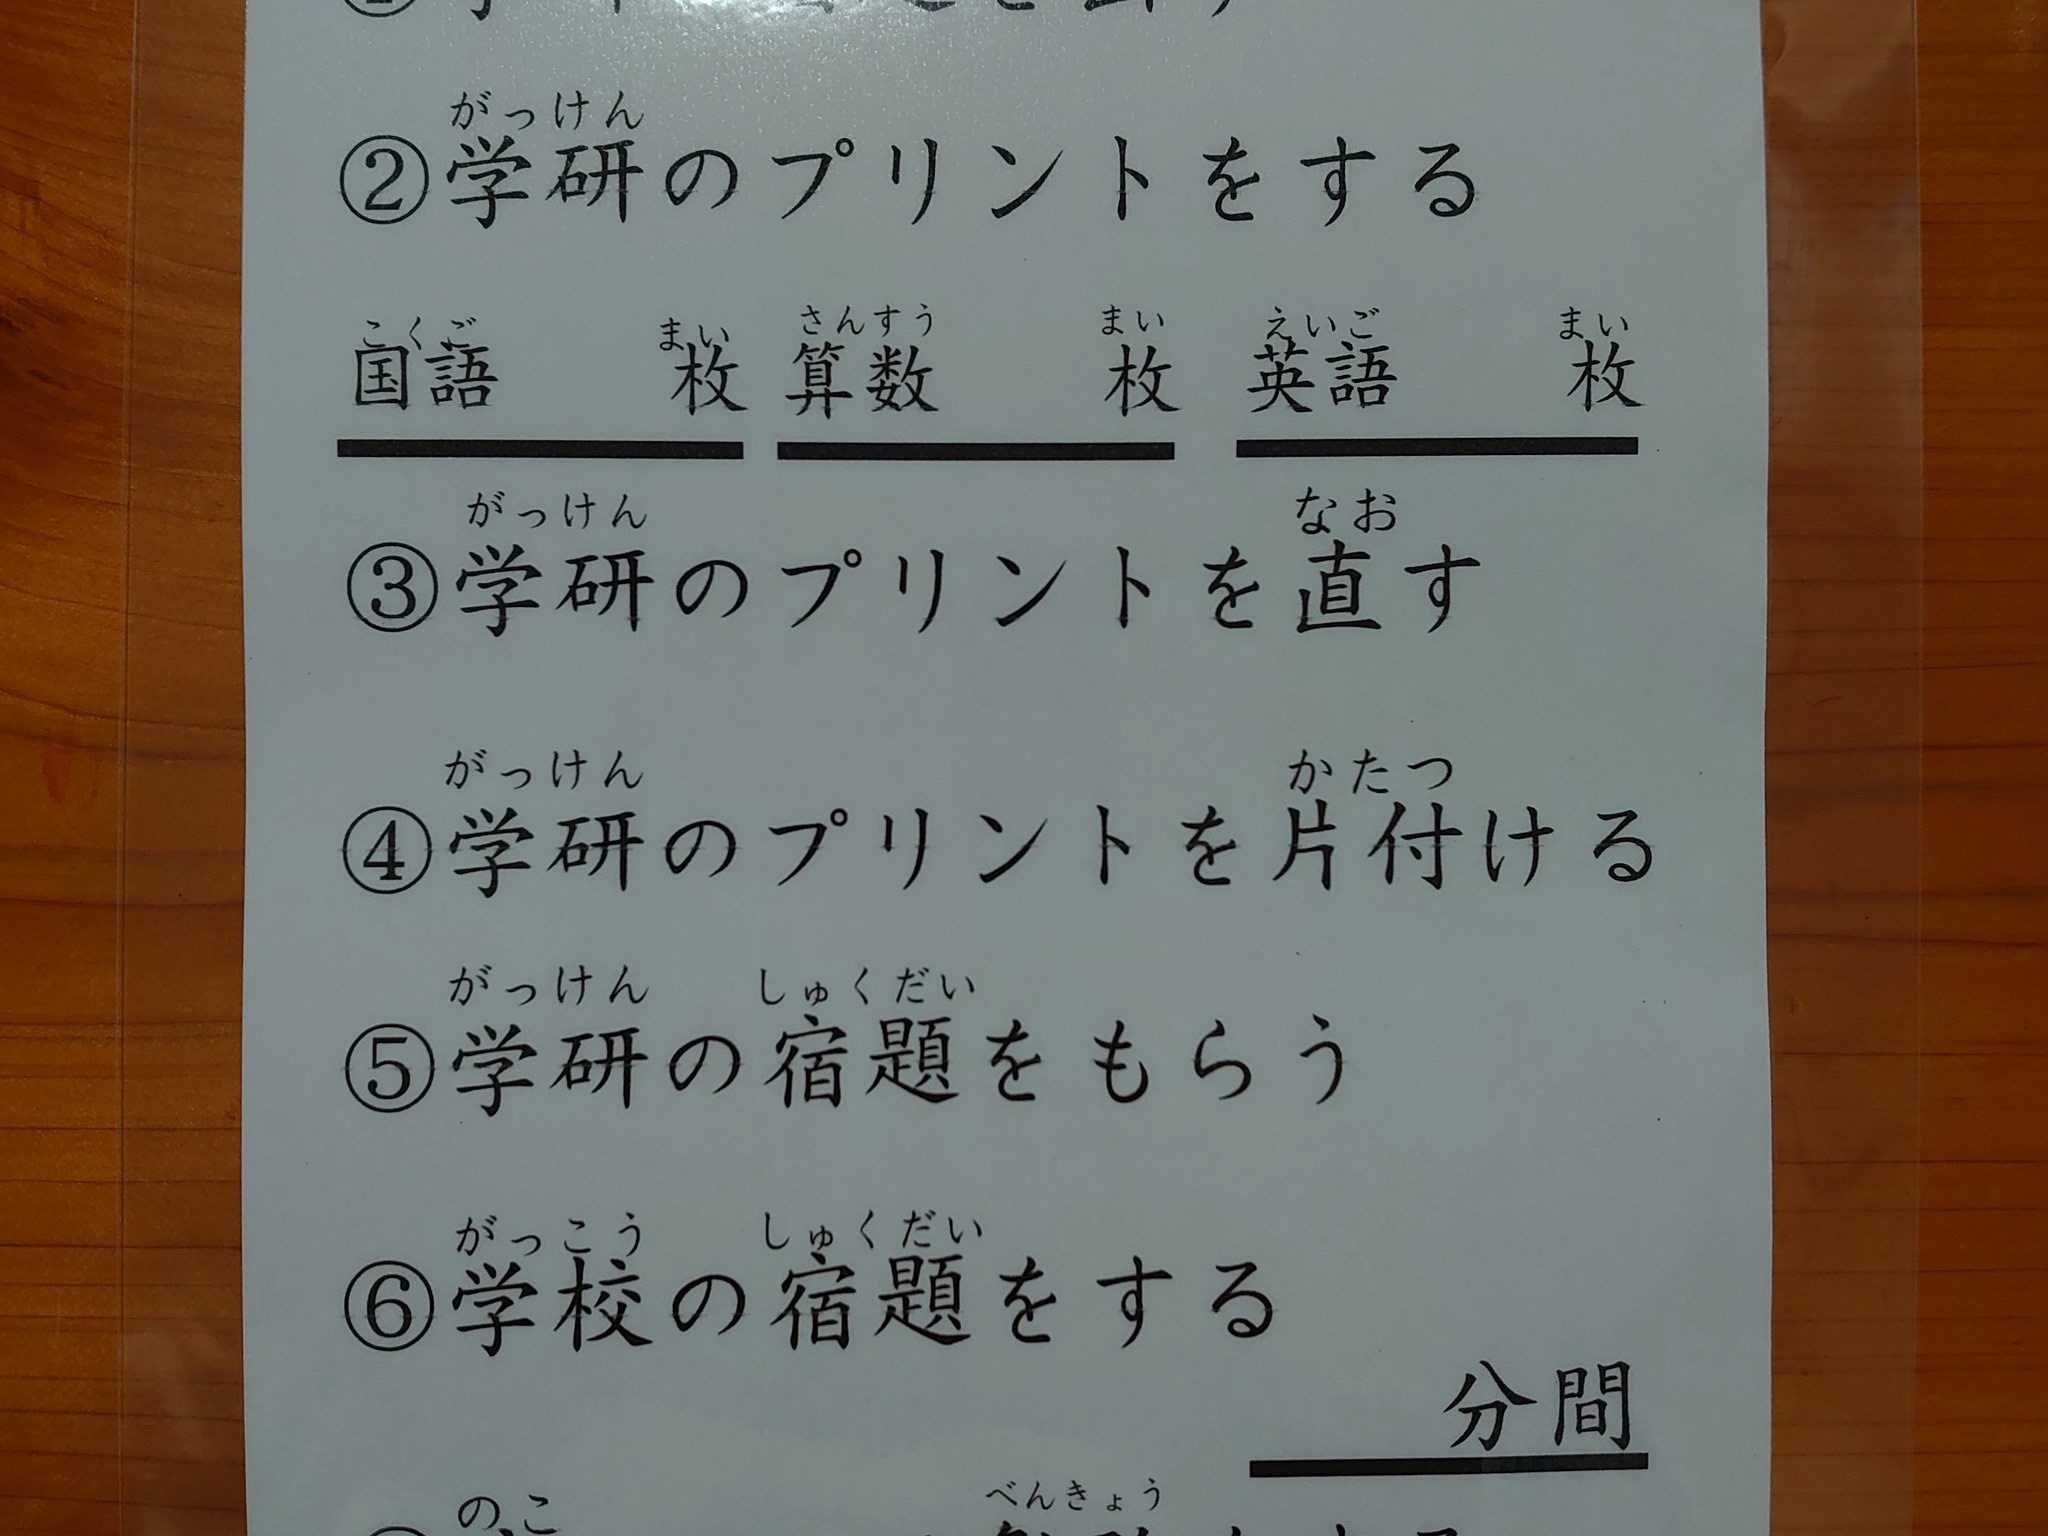 がっけん
②学研のプリントをする
こくご まい さんすう まい えいご まい
国語 枚 算数 枚 英語 枚
がっけん なお
③学研のプリントを直す
がっけん かたつ
④学研のプリントを片付ける
がっけん しゅくだい
⑤学研の宿題をもらう
がっこう しゅくだい
⑥学校の宿題をする
分間
のこ べんきょう